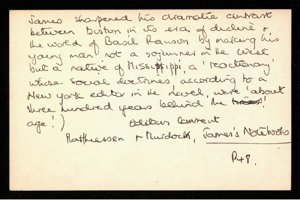 James sharpened his dramatic contrast
between Boston in its era of decline &
the world of Basil Ransom by making his
young man not a sojourner in the West
but a native of Mississippi, a 'reactionary'
whose social doctrines, according to a
New York editor in the novel, were 'about
three hundred years behind the
age'.)
Editors Comment
Matthiessen & Murdock, James's Notebooks
P48.